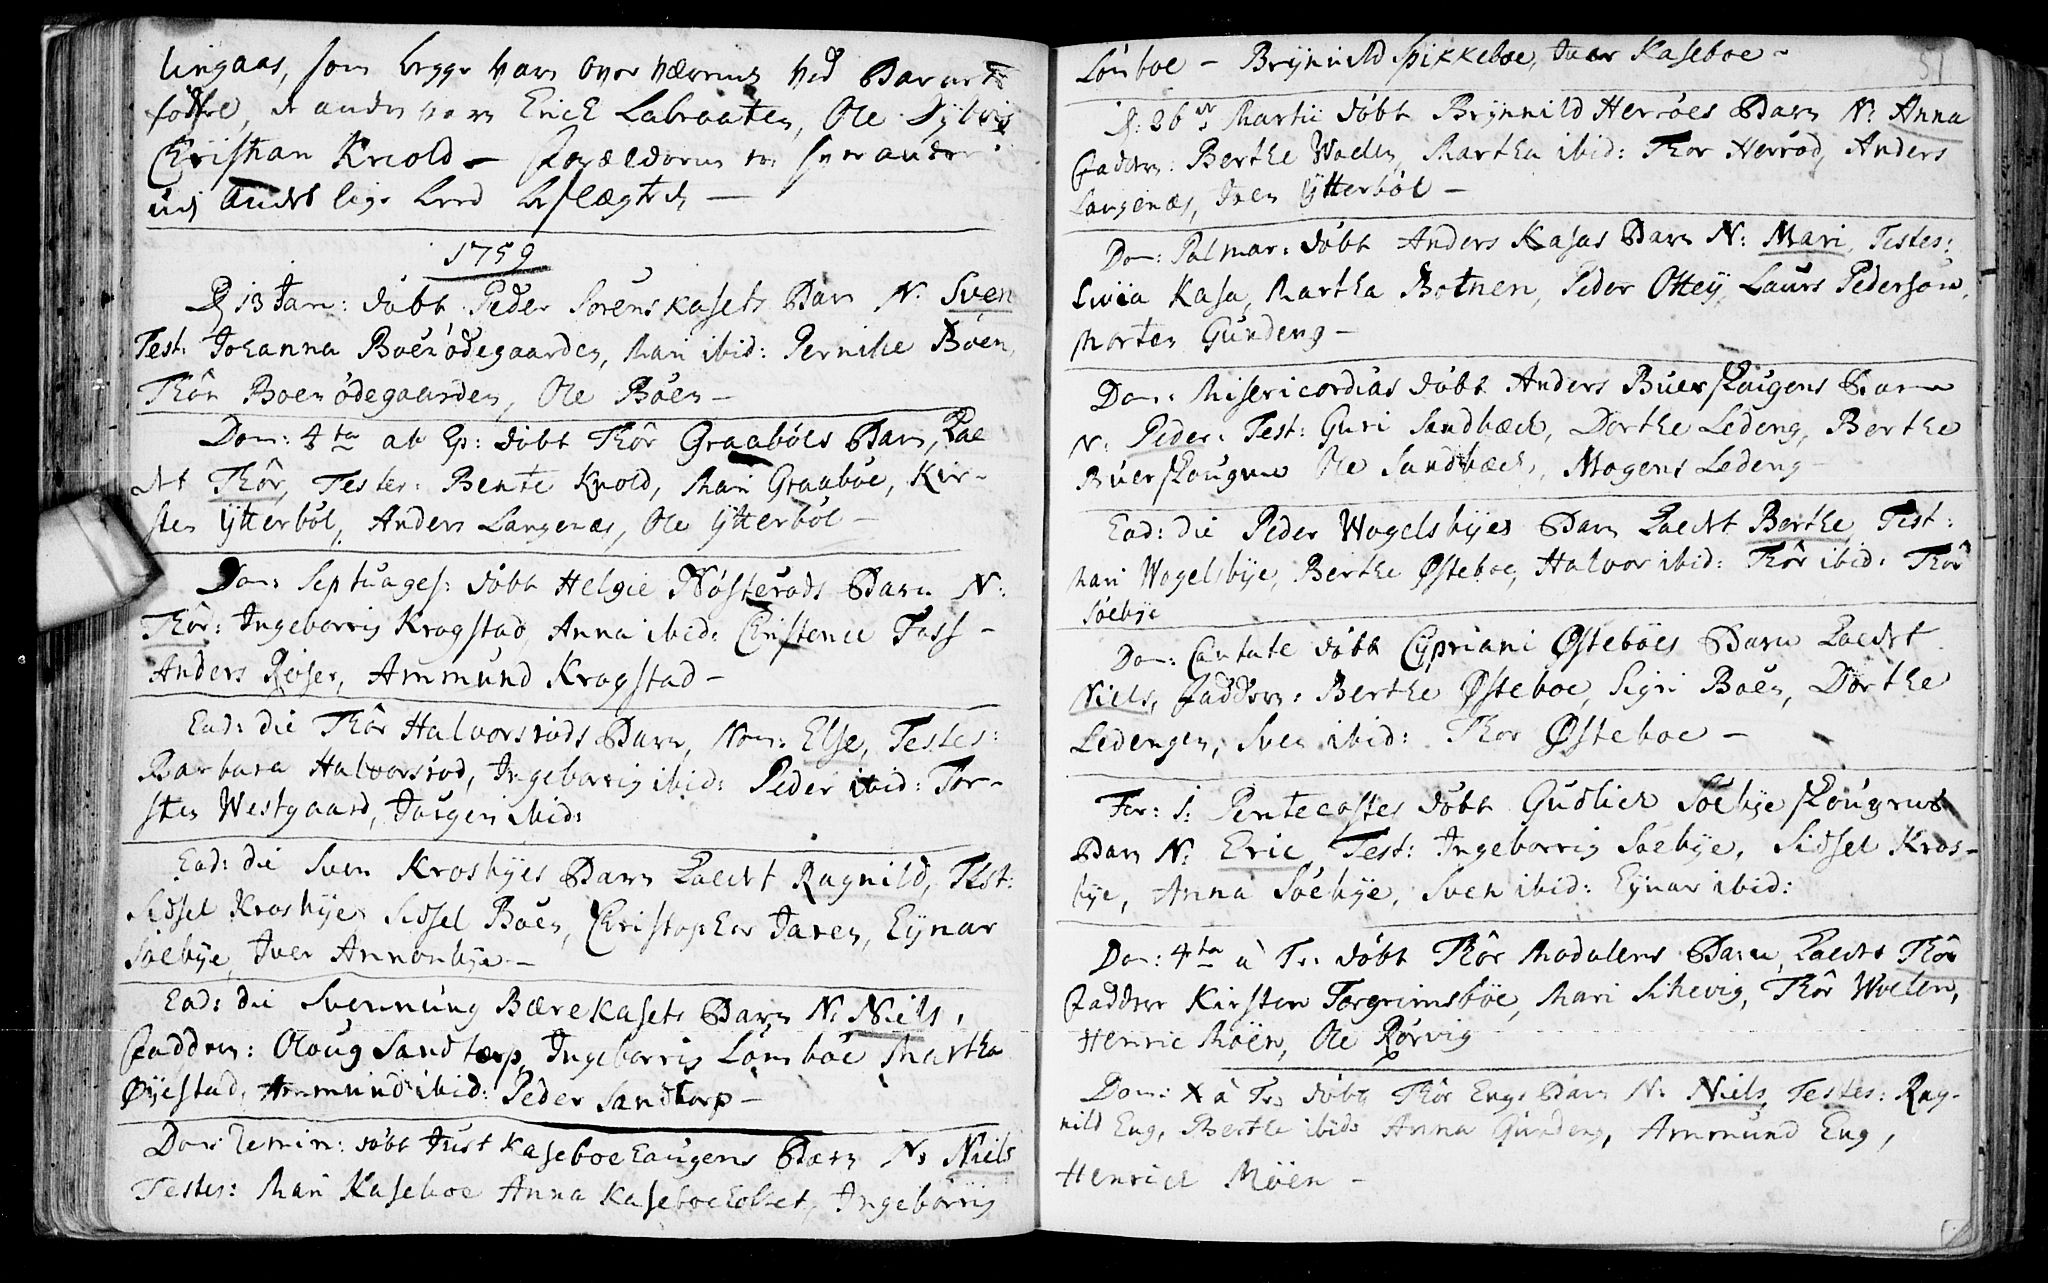 lingaas, som begge vare overværende ved Barnets
fødsel, de andre vare Erick Labraaten, Ole Sylvis
Christian Knold – Forældrene ere hverandre
udj Andet lige Leed beslægtede —
1759
D 13 Jan: døbt Peder Sørenskasets Barn N: Sven
Test: Johanna Boenødegaarden, Mari ibid: Pernille Boen,
Thôr Boenødegaarden, Ole Böen —
Dom: 4ta ab Ep: döbt Thôr Graaböes Barn, kal
det Thôr, Testes: Bente Knold, Mari Graaböe, Kir-
sten Ytterböl, Anders Langenæs, Ole Ytterböl —
Dom: Septuages: döbt Helgie Nösteröds Barn N:
Thôr: Ingeborrig Krogstad, Anna ibid: Christence Foss –
Anders Reiser, Ammund Krogstad –
Ead: die Thôr Halvorsröds Barn, Nom: Else, Testes:
Barbara Halvorsröd, Ingeborrig ibid: Peder ibid: Tor-
sten Westgaard, Jörgen ibid:
Ead: die Sven Krosbyes Barn kaldt Ragnild, Test:
Sidsel Krosbye, Sidsel Boen, Christopher Jaren, Eynar
Soebye, Iver Annonbye —
Ead: die Svennung Bærekasets Barn N: Niels,
Faddere: Oloug Sandtorp, Ingeborrig Lömböe Martha
Öyestad, Ammund ibid: Peder Sandtorp —
Dom: Remin: döbt Just Kaseboe Eaugens Barn N: Niels
Testes: Mari Kaseboe Anna Kaseboe Ingeborrig
51
Lömboe – Brynnild Spikkeboe, Kaseboe –
D: 26de Martii döbt Brynnild Herröes Barn N: Anna
Faddere: Berthe Woelen, Martha ibid: Thor Herröd, Anders
Langenæs, Iver Ytterböl —
Dom: Palmar: döbt Anders Kasas Barn N: Mari, Testes:
Livia Kasa, Martha Botnen, Peder Ottey, Laurs Pedersön,
Morten Gundeng —
Dom: Misericordias döbt Anders Buerskougens Barn
N: Peder: Test: Guri Sandbæck, Dorthe Ledeng, Berthe
Buerskougen Ole Sandbæck, Mogens Ledeng –
Ead: die Peder Wogelsbyes Barn kaldt Berthe, Test:
Mari Wogelsbye, Berthe Østeboe, Halvor ibid: Thôr ibid: Thôr
Söebye
Dom: Cantate döbt Cypriani Østeböes Barn kaldt
Niels, Faddere: Berthe Østeboe, Sigri Boen, Dorthe
Ledengen, Sven ibid: Thor Østeboe —
Fer: 1: Pentecostes döbt Gudlick Söebye skougens
Barn N: Eric, Test: Ingeborrig Soebye, Sidsel Kros-
bye, Anna Söebye, Sven ibid: Eynar ibid:
Dom: 4ta à Tr: döbt Thôr Modalens Barn, kaldt Thôr
Faddere Kirsten Torgrimsböe, Mari Sihevig, Thôr Woelen,
Henric Möen, Ole Rörvig
Dom: X à Tr: döbt Thôr Engs Barn N: Niels, Testes: Rag-
nild Eng, Berthe ibid: Anna Gundeng, Ammund Eng,
Henrick Möen –